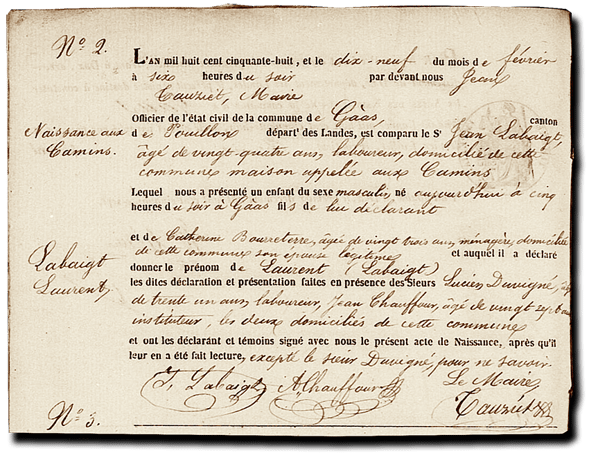 N° 2.
L'AN mil huit cent cinquante-huit, et le dix-neuf du mois de février
à six heures du soir par devant nous Jean
Tauziet, Maire
Officier de l'état civil de la commune de Gàas, canton
de Pouillon, départ' des Landes, est comparu le S' Jean Labaigt,
Naissance aux
Camins.
âgé de vingt-quatre ans, laboureur, domicilié de cette
commune maison appelée aux Camins
Lequel nous a présenté un enfant du sexe masculin, né aujourd'hui à cinq
heures du soir à Gàas fils de lui déclarant
et de Catherine Bourreterre, âgée de vingt trois ans, ménagère, domiciliée
de cette commune son épouse légitime et auquel il a déclaré
Labaigt
Laurent,
donner le prénom de Laurent (Labaigt)
les dites déclaration et présentation faites en présence des Sieurs Lucien Duvigné, âgé
de trente un ans, laboureur, Jean Chauffour, âgé de vingt sept ans
instituteur, les deux domiciliés de cette commune
et ont les déclarant et témoins signé avec nous le présent acte de Naissance, après qu'il
leur en a été fait lecture, excepté le sieur Duvigné, pour ne savoir.
Labaigt Chauffour Le Maire,
Tauziet
N° 3.